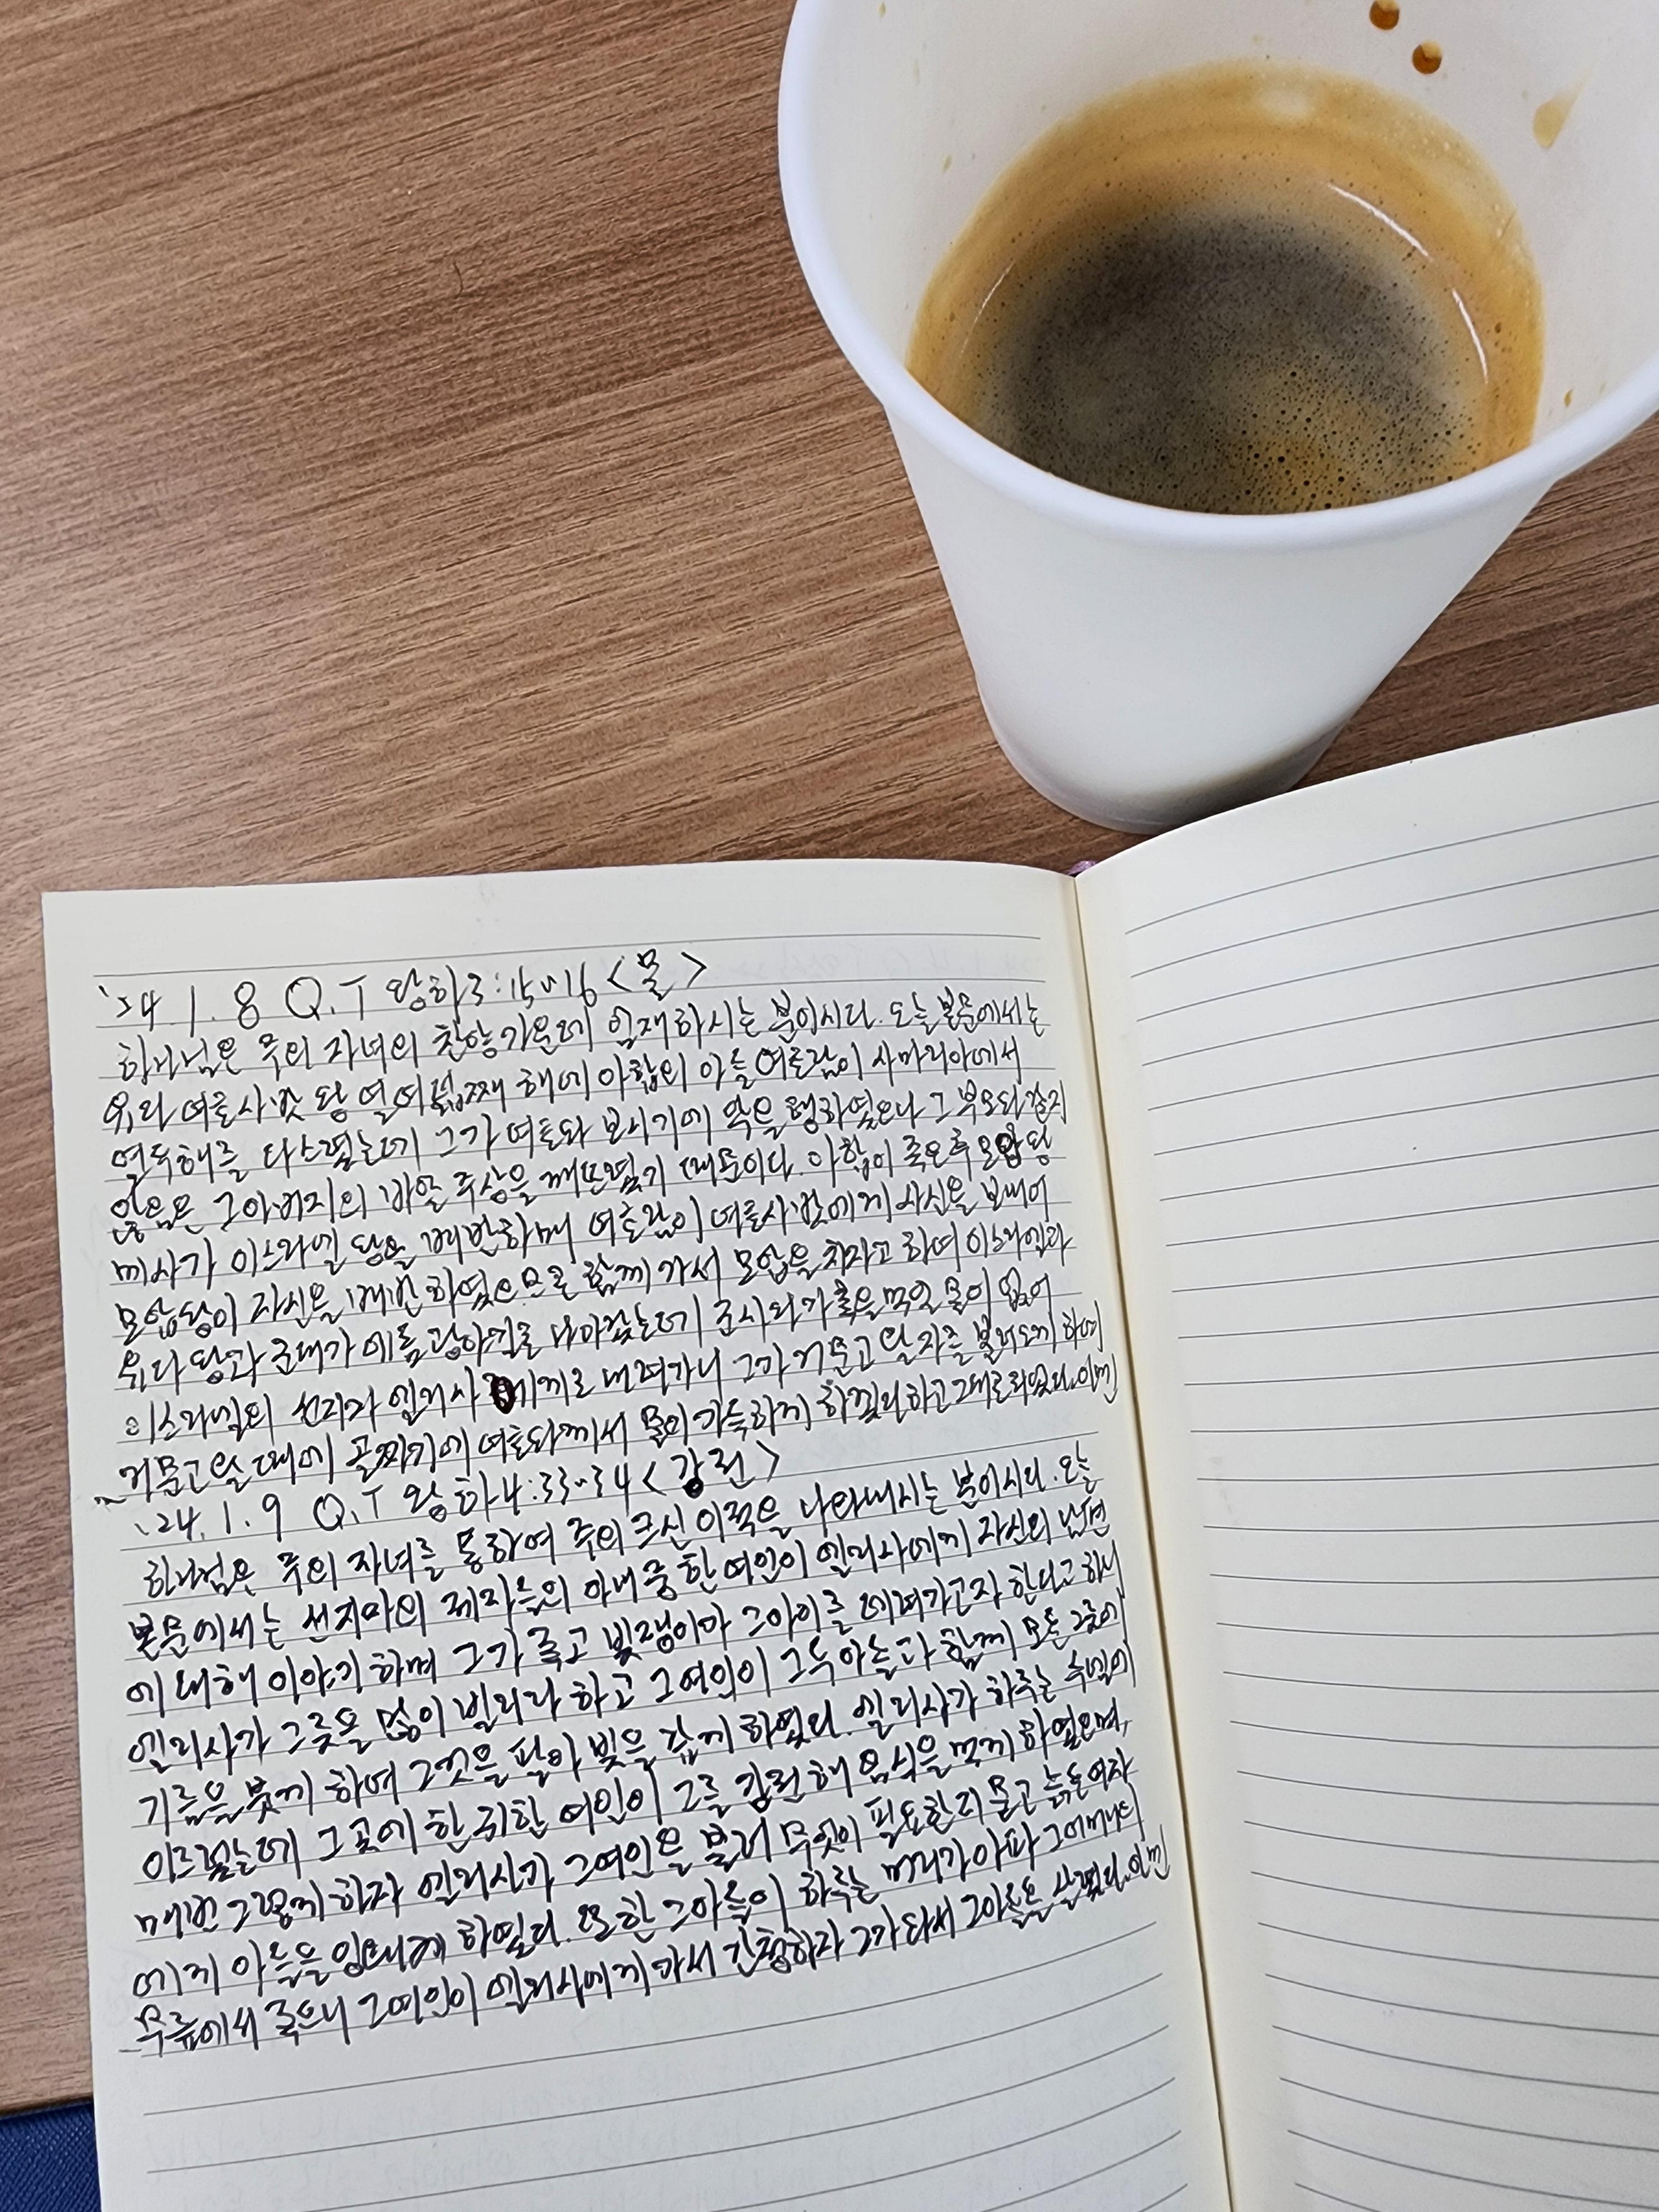 '24. 1. 8 Q.T 왕하3:15~16 <물>
하나님은 주의 자녀의 찬양 가운데 임재하시는 분이시다. 오늘 본문에서는
유다 여호사밧 왕 열여덟째 해에 아합의 아들 여호람이 사마리아에서
열두해를 다스렸는데 그가 여호와 보시기에 악을 행하였으나 그 부모와 같지
않음은 그 아버지의 바알 주상을 깨뜨렸기 때문이다. 아합이 죽은 후 모압 왕
메사가 이스라엘 왕을 배반하매 여호람이 여호사밧에게 사신을 보내어
모압왕이 자신을 배반하였으므로 함께 가서 모압을 치자고 하여 이스라엘과
유다 왕과 군대가 에돔 광야길로 나아갔는데 군사와 가축을 먹일 물이 없어
이스라엘의 선지자 엘리사에게로 내려가니 그가 거문고 탈 자를 불러오게 하여
거문고 탈 때에 골짜기에 여호와께서 물이 가득하게 하겠다 하고 그대로 되었다. 아멘
'24. 1. 9 Q.T 왕하4:33~34 <강권>
하나님은 주의 자녀를 통하여 주의 크신 이적을 나타내시는 분이시다. 오늘
본문에서는 선지자의 제자들의 아내 중 한 여인이 엘리사에게 자신의 남편
에 대해 이야기하며 그가 죽고 빚쟁이가 그 아이를 데려가고자 한다고 하니
엘리사가 그릇을 많이 빌리라 하고 그 여인이 그 두 아들과 함께 모든 그릇에
기름을 붓게 하여 그것을 팔아 빚을 갚게 하였다. 엘리사가 하루는 수넴에
이르렀는데 그 곳에 한 귀한 여인이 그를 강권해 음식을 먹게 하였으며,
매번 그렇게 하자 엘리사가 그 여인을 불러 무엇이 필요한지 묻고 늙은 여자
에게 아들을 잉태케 하였다. 또한 그 아들이 하루는 머리가 아파 그 어머니의
무릎에서 죽으니 그 여인이 엘리사에게 가서 간청하자 그가 다시 그 아들을 살렸다. 아멘